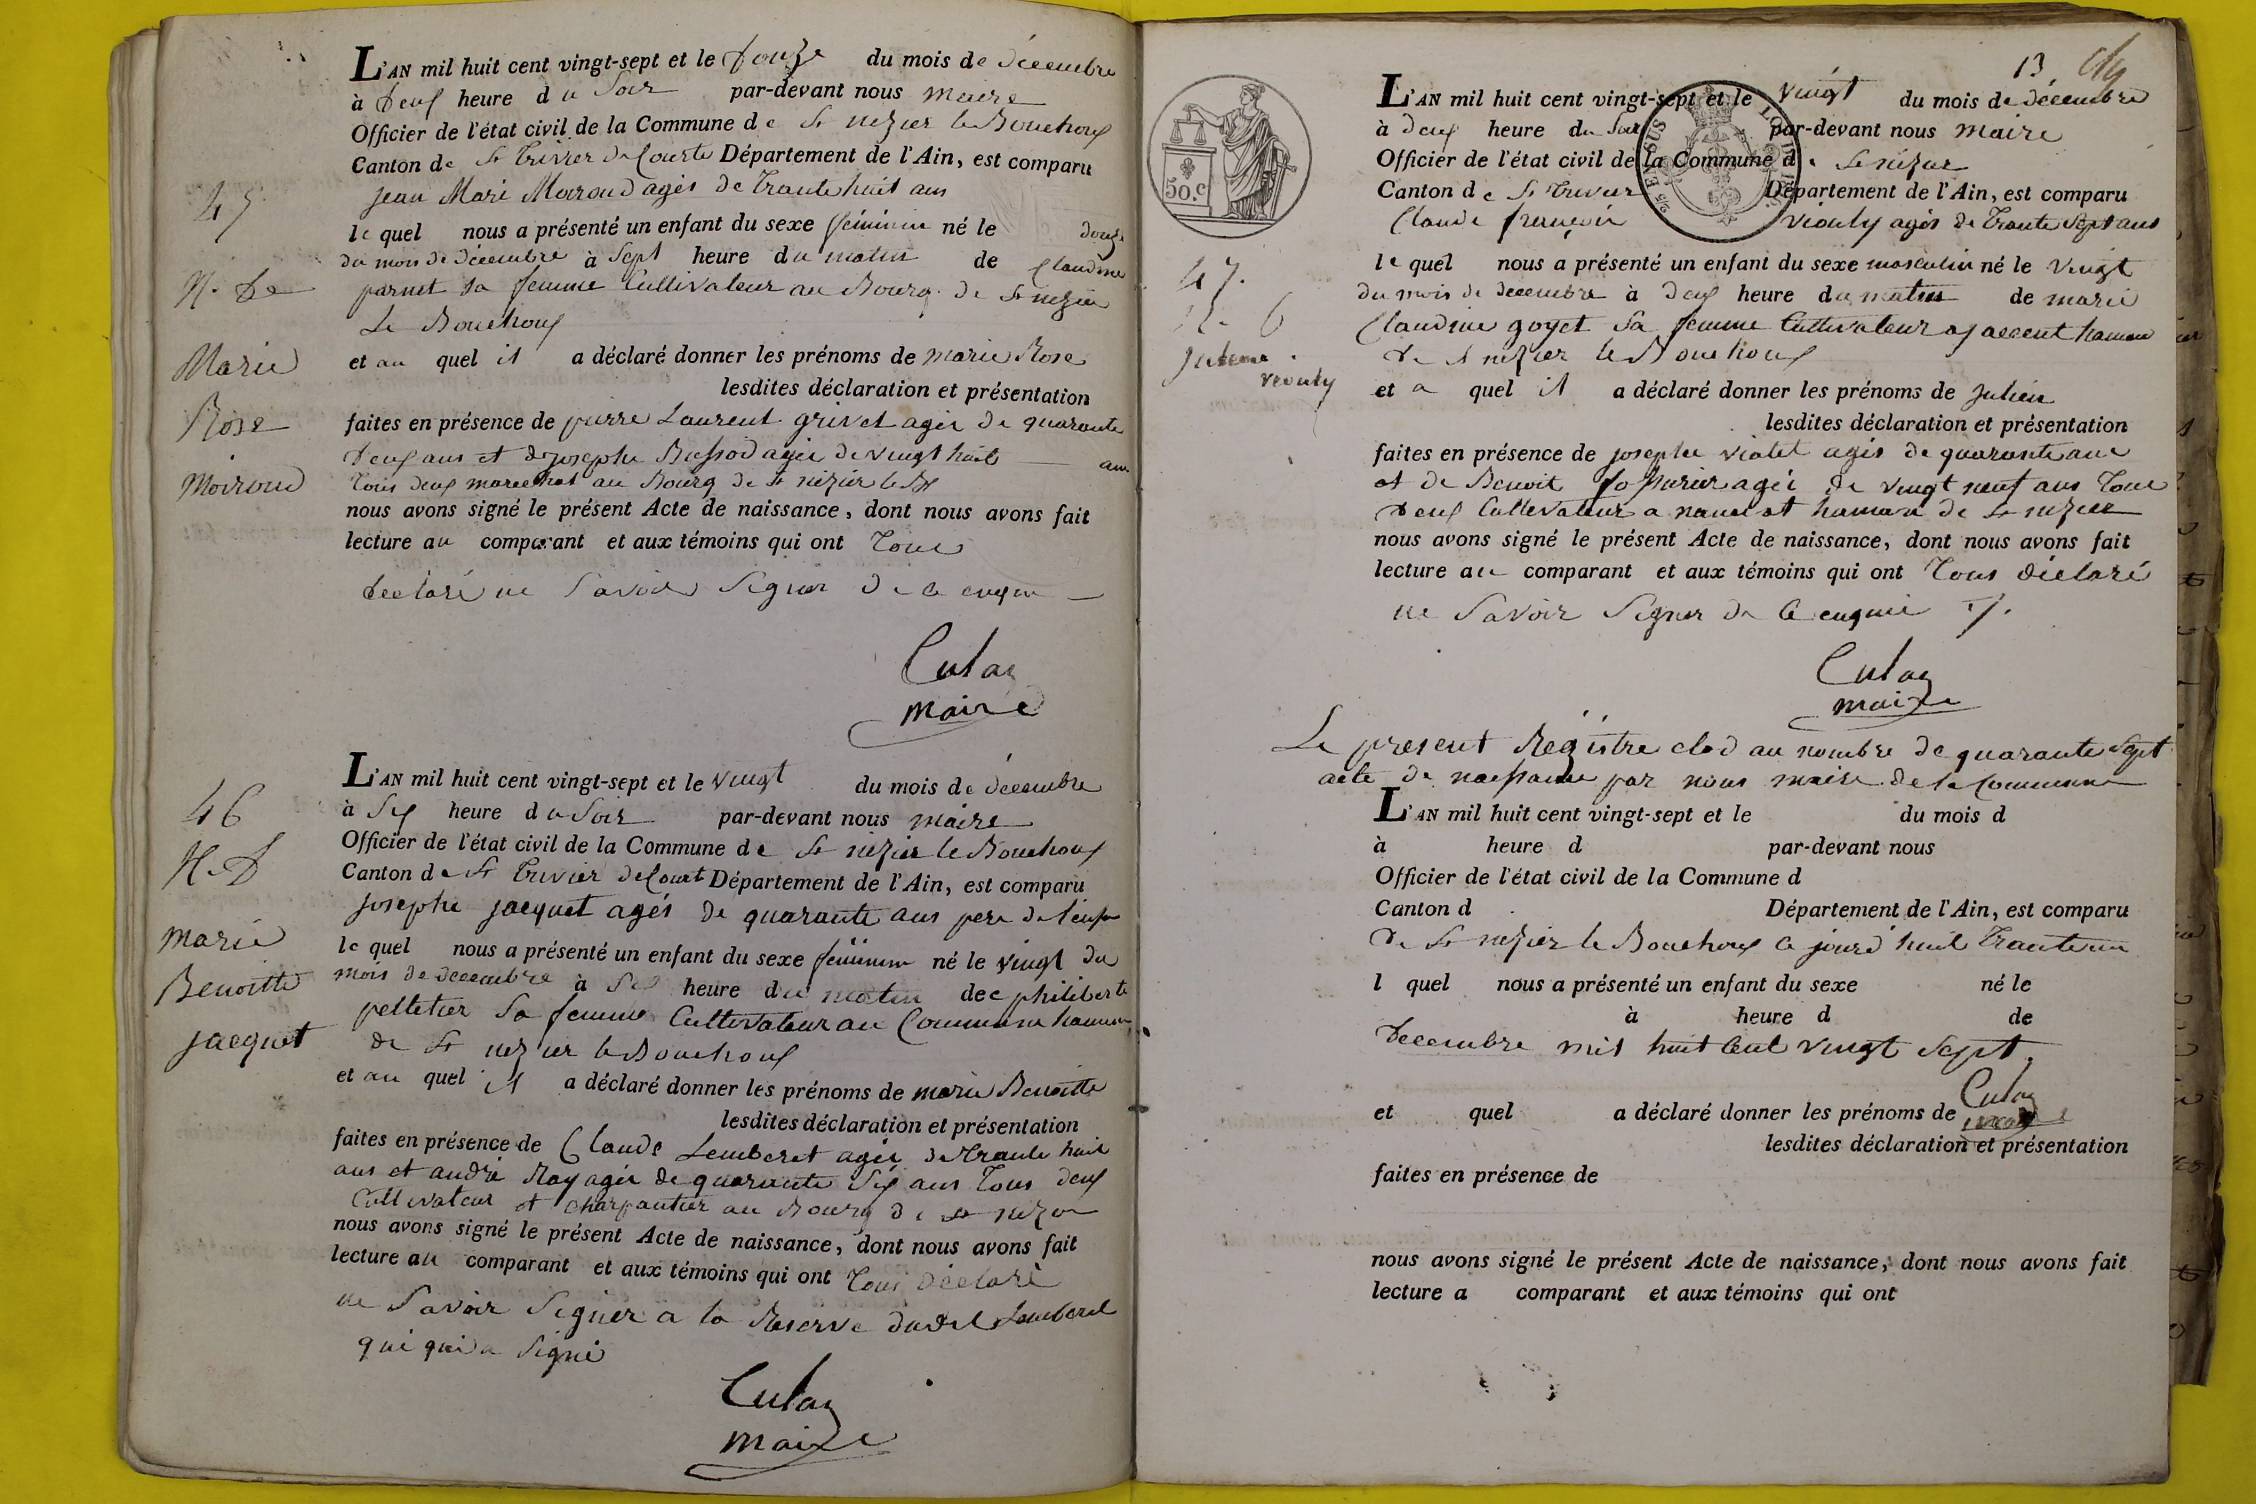 L'AN mil huit cent vingt-sept et le douze du mois de décembre
à deux heure du Soir par-devant nous maire
Officier de l'état civil de la Commune de St nizier le Bouchoux
Canton de St Trivier de Courte Département de l'Ain, est comparu
jean Marie Moiroud agés de Trante huit ans
45
le quel nous a présenté un enfant du sexe féminin né le douze
du mois de décembre à Sept heure du matin de Claudine
N. De
parnet sa femme Cultivateur au Bourg de St nizier
Le Bouchoux
Marie
et au quel il a déclaré donner les prénoms de marie Rose
lesdites déclaration et présentation
Rose
faites en présence de pierre Laurent grivet agée de quarante
deux ans et de josephe agée de vingt huit ans
Moiroud
Tous deux marechal au Bourg de St nizier le Bx
nous avons signé le présent Acte de naissance, dont nous avons fait
lecture au comparant et aux témoins qui ont Tous
declaré ne Savoir Signer de ce enquis
Culaz
maire
L'AN mil huit cent vingt-sept et le vingt du mois de décembre
46
à Six heure du Soir par-devant nous maire
Officier de l'état civil de la Commune de St nizier le Bouchoux
N. D
Canton de St Trivier de Court Département de l'Ain, est comparu
josephe jacquet agés de quarante ans pere de l'enfan
marie
le quel nous a présenté un enfant du sexe féminin né le vingt du
Benoitte
mois de decembre à Six heure du matin de philiberte
pelletier sa femme Cultivateur au Commune hameau
jacquet
de St nizier le Bouchoux
et au quel il a déclaré donner les prénoms de marie Benoitte
lesdites déclaration et présentation
faites en présence de Claude Lemberet agée de Trante huit
ans et andré Ray agée de quarante Six ans Tous deux
Cultivateur et charpantier au Bourg de St nizier
nous avons signé le présent Acte de naissance, dont nous avons fait
lecture au comparant et aux témoins qui ont Tous déclaré
ne Savoir Signer a la Reserve dudit Lemberet
qui qui a Signé
Culaz
maire
13
L'AN mil huit cent vingt-sept et le vingt du mois de décembre
à deux heure du Soir par-devant nous maire
Officier de l'état civil de la Commune de St nizier
50.c
Canton de St Trivier Département de l'Ain, est comparu
Claude françois viouly agés de Trante Sept ans
47.
le quel nous a présenté un enfant du sexe masculin né le vingt
du mois de decembre à deux heure du matin de marie
Claudine goyet sa femme Cultivateur hameau
julien
viouly
de St nizier le Bouchoux
et a quel il a déclaré donner les prénoms de julien
lesdites déclaration et présentation
faites en présence de josephe violet agés de quarante ans
et de Benoit agée de vingt neuf ans Tous
deux Cultivateur a hameau de St nizier
nous avons signé le présent Acte de naissance, dont nous avons fait
lecture au comparant et aux témoins qui ont Tous déclaré
ne Savoir Signer de ce enquis
Culaz
maire
Le present Régistre clod au nombre de quarante Sept
acte de naissance par nous maire de la Commune
L'AN mil huit cent vingt-sept et le du mois d
à heure d par-devant nous
Officier de l'état civil de la Commune d
Canton d Département de l'Ain, est comparu
De St nizier le Bouchoux ce jourd'huit Trante un
l quel nous a présenté un enfant du sexe né le
à heure d de
Decembre mil huit Cent vingt Sept.
Culaz
et quel a déclaré donner les prénoms de maire
lesdites déclaration et présentation
faites en présence de
nous avons signé le présent Acte de naissance, dont nous avons fait
lecture a comparant et aux témoins qui ont